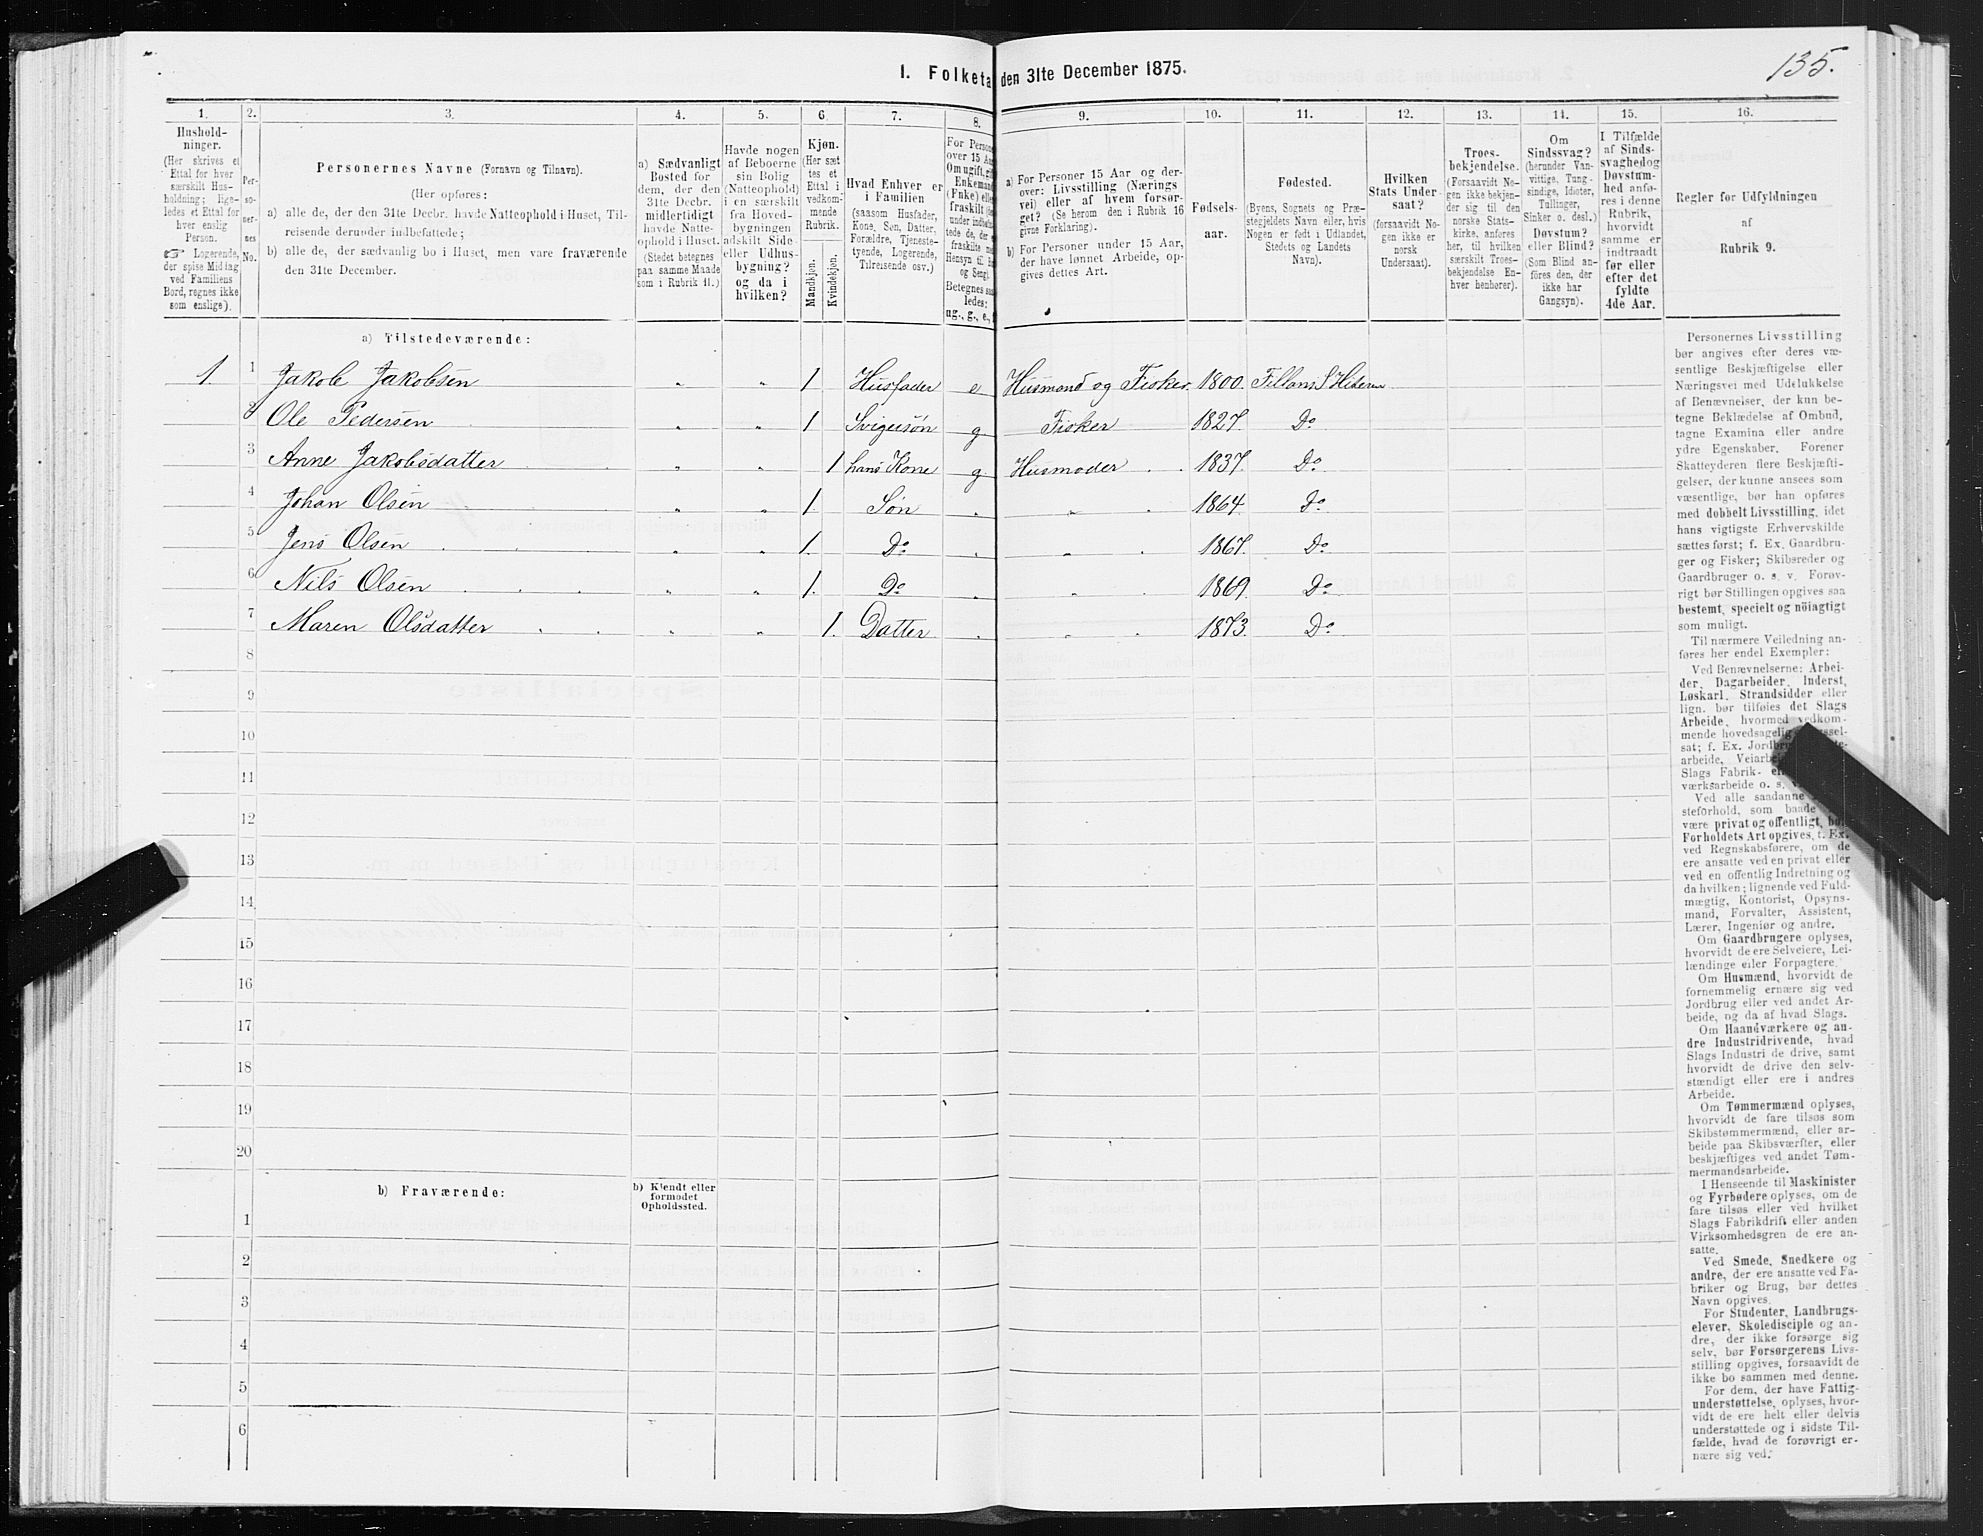 135.
I. Folketa den 31te December 1875.
1. 2. 3. 4. 5. 6. 7. 8. 9. 10. 11. 12. 13. 14. 15. 16.
Hushold-
ninger.
(Her skrives et
Ettal for hver
særskilt Hus-
holdning; lige-
ledes et Ettal for
hver enslig
Person.
☞ Logerende,
der spise Middag
ved Familiens
Bord, regnes ikke
som enslige).
Per-
so-
ner-
nes
No.
Personernes Navne (Fornavn og Tilnavn).
(Her opføres:
a) alle de, der den 31te Decbr. havde Natteophold i Huset, Til-
reisende derunder indbefattede;
b) alle de, der sædvanlig bo i Huset, men vare fraværende
den 31te December.
a) Sædvanligt
Bosted for
dem, der den
31te Decbr.
midlertidigt
havde Natte-
ophold i Huset.
(Stedet betegnes
paa samme Maade
som i Rubrik 11.)
Havde nogen
af Beboerne
sin Bolig
(Natteophold)
i en særskilt
fra Hoved-
bygningen
adskilt Side-
eller Udhus-
bygning?
og da i
hvilken?
Kjøn.
(Her sæt
tes et
Ettal i
vedkom-
mende
Rubrik.
Mandkjøn.
Kvindekjøn.
Hvad Enhver er
i Familien
(saasom Husfader,
Kone, Søn, Datter,
Forældre, Tjeneste-
tyende, Logerende,
Tilreisende osv.)
For Person
over 15 Aa
Om ugift, gi
Enkeman
(Fnke) elle
fraskilt
under indbe
tede de, der
fraskilte
Hensyn til B
og Seng).
Betegnes saa
ledes:
ug., g., e.,
a) For Personer 15 Aar og der-
over: Livsstilling (Nærings
vei) eller af hvem forsør-
get? (Se herom den i Rubrik 16
givne Forklaring).
b) For Personer under 15 Aar,
der have lønnet Arbeide, op-
gives dettes Art.
Fødsels-
aar.
Fødested.
(Byens, Sognets og Præ-
stegjeldets Navn eller, hvis
Nogen er født i Udlandet,
Stedets og Landets
Navn).
Hvilken
Stats Under-
saat?
(forsaavidt No-
gen ikke er
norsk
Undersaat).
Troes-
bekjendelse.
(Forsaavidt No-
gen ikke bekjen-
der sig til den
norske Stats-
kirke, anføres
her, til hvilken
særskilt Troes-
bekjendelse En-
hver henhører).
Om
Sindssvag?
(herunder Van-
vittige, Tung-
sindige, Idioter,
Tullinger,
Sinker o. desl.)
Døvstum?
eller Blind?
(Som Blind an-
føres den, der
ikke har
Gangsyn).
I Tilfælde
af Sinds-
svaghed og
Døvstum-
hed anfø-
res i denne
Rubrik,
hvorvidt
samme er
indtraadt
før eller
efter det
fyldte
4de Aar.
Regler for Udfyldningen
af
Rubrik 9.
a) Tilstedeværende:
1. 1 Jakob Jakobsen " " 1 Husfader e Husmand og Fisker. 1800.
2 Ole Pedersen " " 1 Svigersøn g Fisker 1827. Do
3 Anne Jakobsdatter " " 1 hans Kone g Husmoder 1837. Do
4 Johan Olsen " " 1. Søn " " 1864. Do
5 Jens Olsen " " 1. Do " " 1867. Do
6 Nils Olsen " " 1. Do " " 1869. Do
7 Maren Olsdatter " " 1. Datter " " 1873. Do
8
9
10
11
12
13
14
15
16
17
18
19
20
b) Fraværende: b) Kjendt eller
formodet
Opholdssted.
1
2
3
4
5
6
Personernes Livsstilling
bør angives efter deres væ-
sentlige Beskjæftigelse eller
Næringsvei med Udelukkelse
af Benævneiser, der kun be-
tegne Beklædelse af Ombud,
tagne Examina eller andre
ydre Egenskaber. Forener
Skatteyderen flere Beskjæfti-
gelser, der kunne ansees som
væsentlige, bør han opføres
med dobbelt Livsstilling, idet
hans vigtigste Erhvervskilde
sættes først; f. Ex. Gaardbru-
ger og Fisker; Skibsreder og
Gaardbruger o. s. v. Forøv-
rigt bør Stillingen opgives saa
bestemt, specielt og nöiagtigt
som muligt.
Til nærmere Veiledning an-
føres her endel Exempler:
Ved Benævnelserne: Arbei-
der, Dagarbeider, Inderst,
Løskarl, Strandsidder eller
lign. bør tilføies det Slags
Arbeide, hvormed vedkom-
mende hovedsagelig
sat; f. Ex.
arbeide,
Slags Fabrik-
værksarbeide o. s.
Ved alle saadanne
steforhold, som baade
være privat og offentligt,
Forholdets Art opgives, f. Ex.
ved Regnskabsførere, om de
ere ansatte ved en privat eller
ved en offentlig Indretning og
da hvilken; lignende ved Fuld-
mægtig, Kontorist, Opsyns-
mand, Forvalter, Assistent,
Lærer, Ingeniør og andre.
Om Gaardbrugere oplyses,
hvorvidt de ere Selveiere, Lei-
lændinge eller Forpagtere.
Om Husmænd, hvorvidt de
fornemmelig ernære sig ved
Jordbrug eller ved andet Ar-
beide, og da af hvad Slags.
Om Haandværkere og an-
dre Industridrivende, hvad
Slags Industri de drive, samt
hvorvidt de drive den selv-
stændigt eller ere i andres
Arbeide.
Om Tømmermænd oplyses,
hvorvidt de fare tilsøs som
Skibstømmermænd, eller ar-
beide paa Skibsværfter, eller
beskjæftiges ved andet Tøm-
mermandsarbeide.
I Henseende til Maskinister
og Fyrbødere oplyses, om de
fare tilsøs eller ved hvilket
Slags Fabrikdrift eller anden
Virksomhedsgren de ere an-
satte.
Ved Smede, Snedkere og
andre, der ere ansatte ved Fa-
briker og Brug, bør dettes
Navn opgives.
For Studenter, Landbrugs-
elever, Skoledisciple og an-
dre, der ikke forsørge sig
selv, bør Forsørgerens Livs-
stilling opgives, forsaavidt de
ikke bo sammen med denne.
For dem, der have Fattig-
understøttelse, oplyses, hvor-
vidt de ere helt eller delvis
understøttede og i sidste Til-
fælde, hvad de forøvrigt er-
nære sig ved.